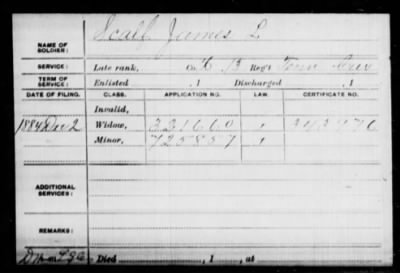 NAME OF SOLDIER: Scalf, James L
SERVICE: Late rank, Co. 13 Reg't Tenn Cav
TERM OF SERVICE: Enlisted , 1 Discharged , 1
DATE OF FILING. CLASS. APPLICATION NO. LAW. CERTIFICATE NO.
Invalid,
1884 Dec 2 Widow, 321660
Minor,
ADDITIONAL SERVICES:
REMARKS:
Died , 1 , at